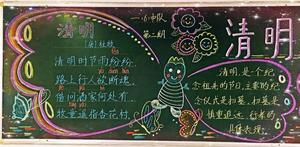 清明
[唐]杜牧
清明时节雨纷纷，
路上行人欲断魂。
借问酒家何处有，
牧童遥指杏花村。
一·6中队
第二期
清明
清明，是一个纪
念祖先的节日，主要的纪
念仪式是扫墓，扫墓是
慎重追远、行孝的
具体表现。